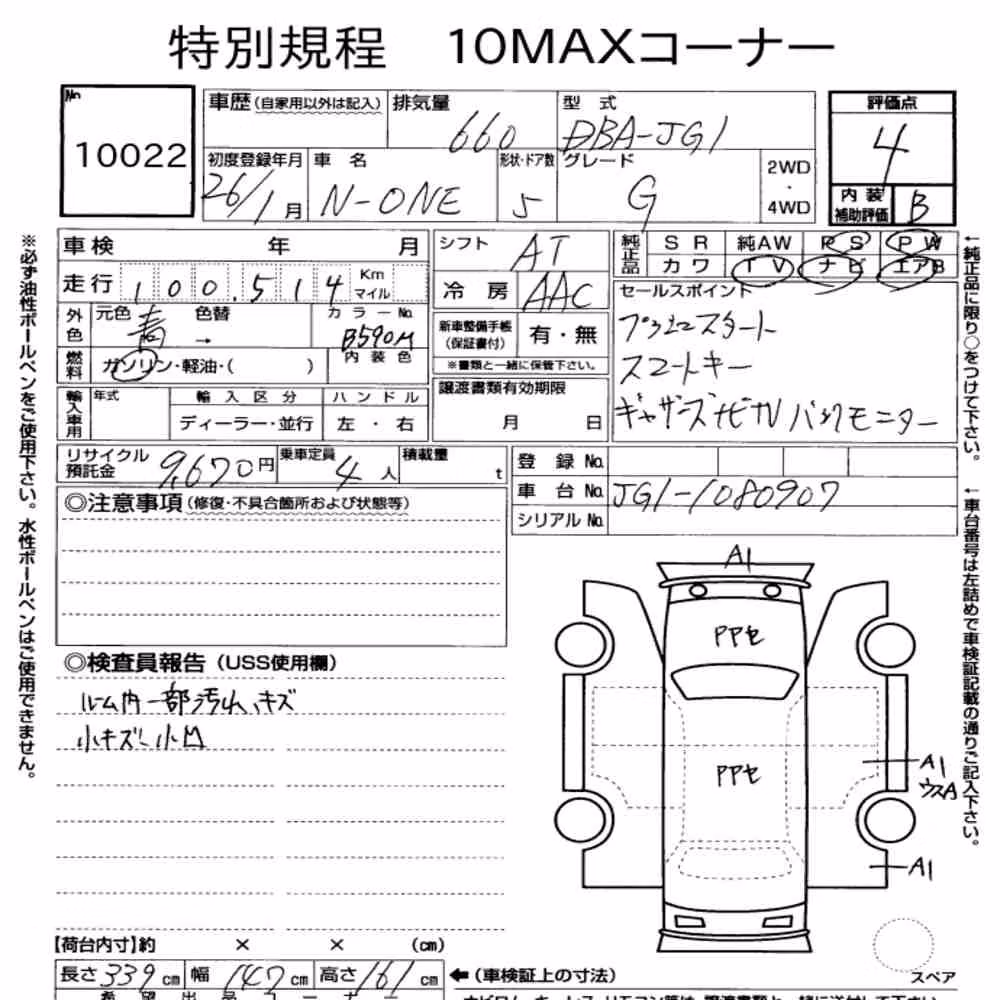 特別規程 10MAXコーナー
No 10022
車歴(自家用以外は記入) 排気量 660 型式 DBA-JG1
初度登録年月 26/1月 車名 N-ONE 形状・ドア数 5 グレード G 2WD・4WD
評価点 4
内装補助評価 B
車検 年 月
走行 100,514 Km マイル
外色 元色 青 色替 → カラーNo. B590M
燃料 ガソリン・軽油・( ) 内装色
輸入車用 年式 輸入区分 ハンドル
ディーラー・並行 左・右
シフト AT
冷房 AAC
新車整備手帳(保証書付) 有・無
※書類と一緒に保管下さい。
譲渡書類有効期限
月 日
純正品 SR 純AW PS PW
カワ TV ナビ エアB
セールスポイント
プッシュスタート
スマートキー
ギャザーズナビTV バックモニター
リサイクル預託金 9,670円 乗車定員 4人 積載量 t
登録No.
車台No. JG1-1080907
シリアルNo.
◎注意事項(修復・不具合箇所および状態等)
◎検査員報告(USS使用欄)
ルーム内一部汚れ、キズ
小キズ、小凹
A1
PPセ
PPセ
A1
ウスA
A1
スペア
【荷台内寸】約 × × (cm)
長さ 339cm 幅 147cm 高さ 161cm ←(車検証上の寸法)
※必ず油性ボールペンをご使用下さい。水性ボールペンはご使用できません。
←純正品に限り○をつけて下さい。
←車台番号は左詰めで車検証記載の通りご記入下さい。